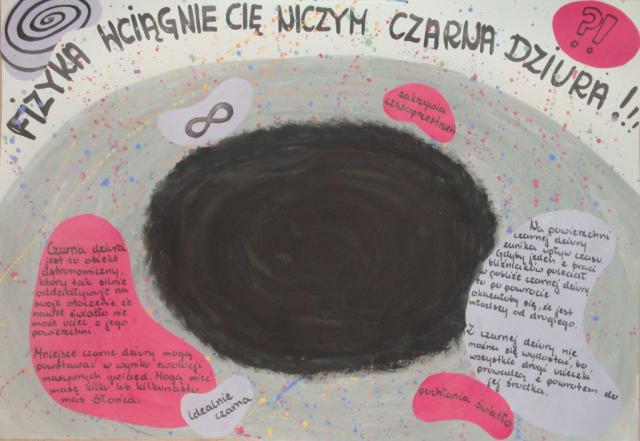 FIZYKA WCIĄGNIE CIĘ NICZYM CZARNA DZIURA!!!
?!
∞
zakrzywia
czasoprzestrzeń
Czarna dziura
jest to obiekt
astronomiczny,
który tak silnie
oddziaływuje na
swoje otoczenie, że
nawet światło nie
może uciec z jego
powierzchni.
Mniejsze czarne dziury mogą
powstawać w wyniku ewolucji
masywnych gwiazd. Mogą mieć
masę kilku lub kilkunastu
mas Słońca.
Idealnie
czarna
Na powierzchni
czarnej dziury
zanika upływ czasu.
Gdyby jeden z braci
bliźniaków poleciał
w pobliże czarnej dziury
to po powrocie
okazałoby się, że jest
młodszy od drugiego.
Z czarnej dziury nie
można się wydostać, bo
wszystkie drogi ucieczki
prowadzą z powrotem do
jej środka.
pochłania światło